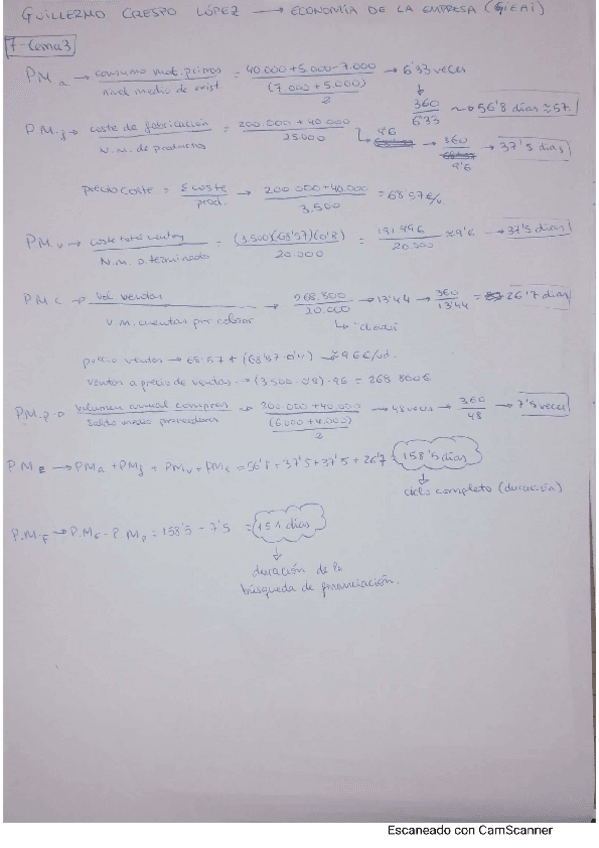 GUILLERMO CRESPO LÓPEZ → ECONOMÍA DE LA EMPRESA (GIEAI)
7-tema3
PMa → consumo mat. primas / nivel medio de exist = 40.000+5.000-7.000 / (7.000+5.000)/2 → 6'33 veces
↓
360/6'33 → 56'8 días ≈ 57
PMf → coste de fabricación / N.M. de productos = 200.000+40.000 / 25.000 ↳ 9'6 → 360/9'6 → 37'5 días
precio coste = Σ coste / prod. → 200.000+40.000 / 3.500 = 68'57€/u.
PMv → coste total ventas / N.M. P. terminado = (3.500)(68'57)(0'8) / 20.000 = 191.996 / 20.000 ≈ 9'6 → 37'5 días
PMc → Vol. ventas / V.M. cuentas por cobrar → 268.800 / 20.000 → 13'44 → 360/13'44 = 26'7 días
precio ventas → 68'57 + (68'57·0'4) ≈ 96€/ud.
ventas a precio de ventas → (3.500·0'8)·96 = 268.800€
PMp → Volumen anual compras / Saldo medio proveedores → 200.000+40.000 / (6.000+4.000)/2 → 48 veces → 360/48 → 7'5 veces
PME → PMa + PMf + PMv + PMc = 56'8 + 37'5 + 37'5 + 26'7 = 158'5 días
↓
ciclo completo (duración)
P.M.F → P.ME - P.Mp = 158'5 - 7'5 = 151 días
↓
duración de la
búsqueda de financiación.
Escaneado con CamScanner